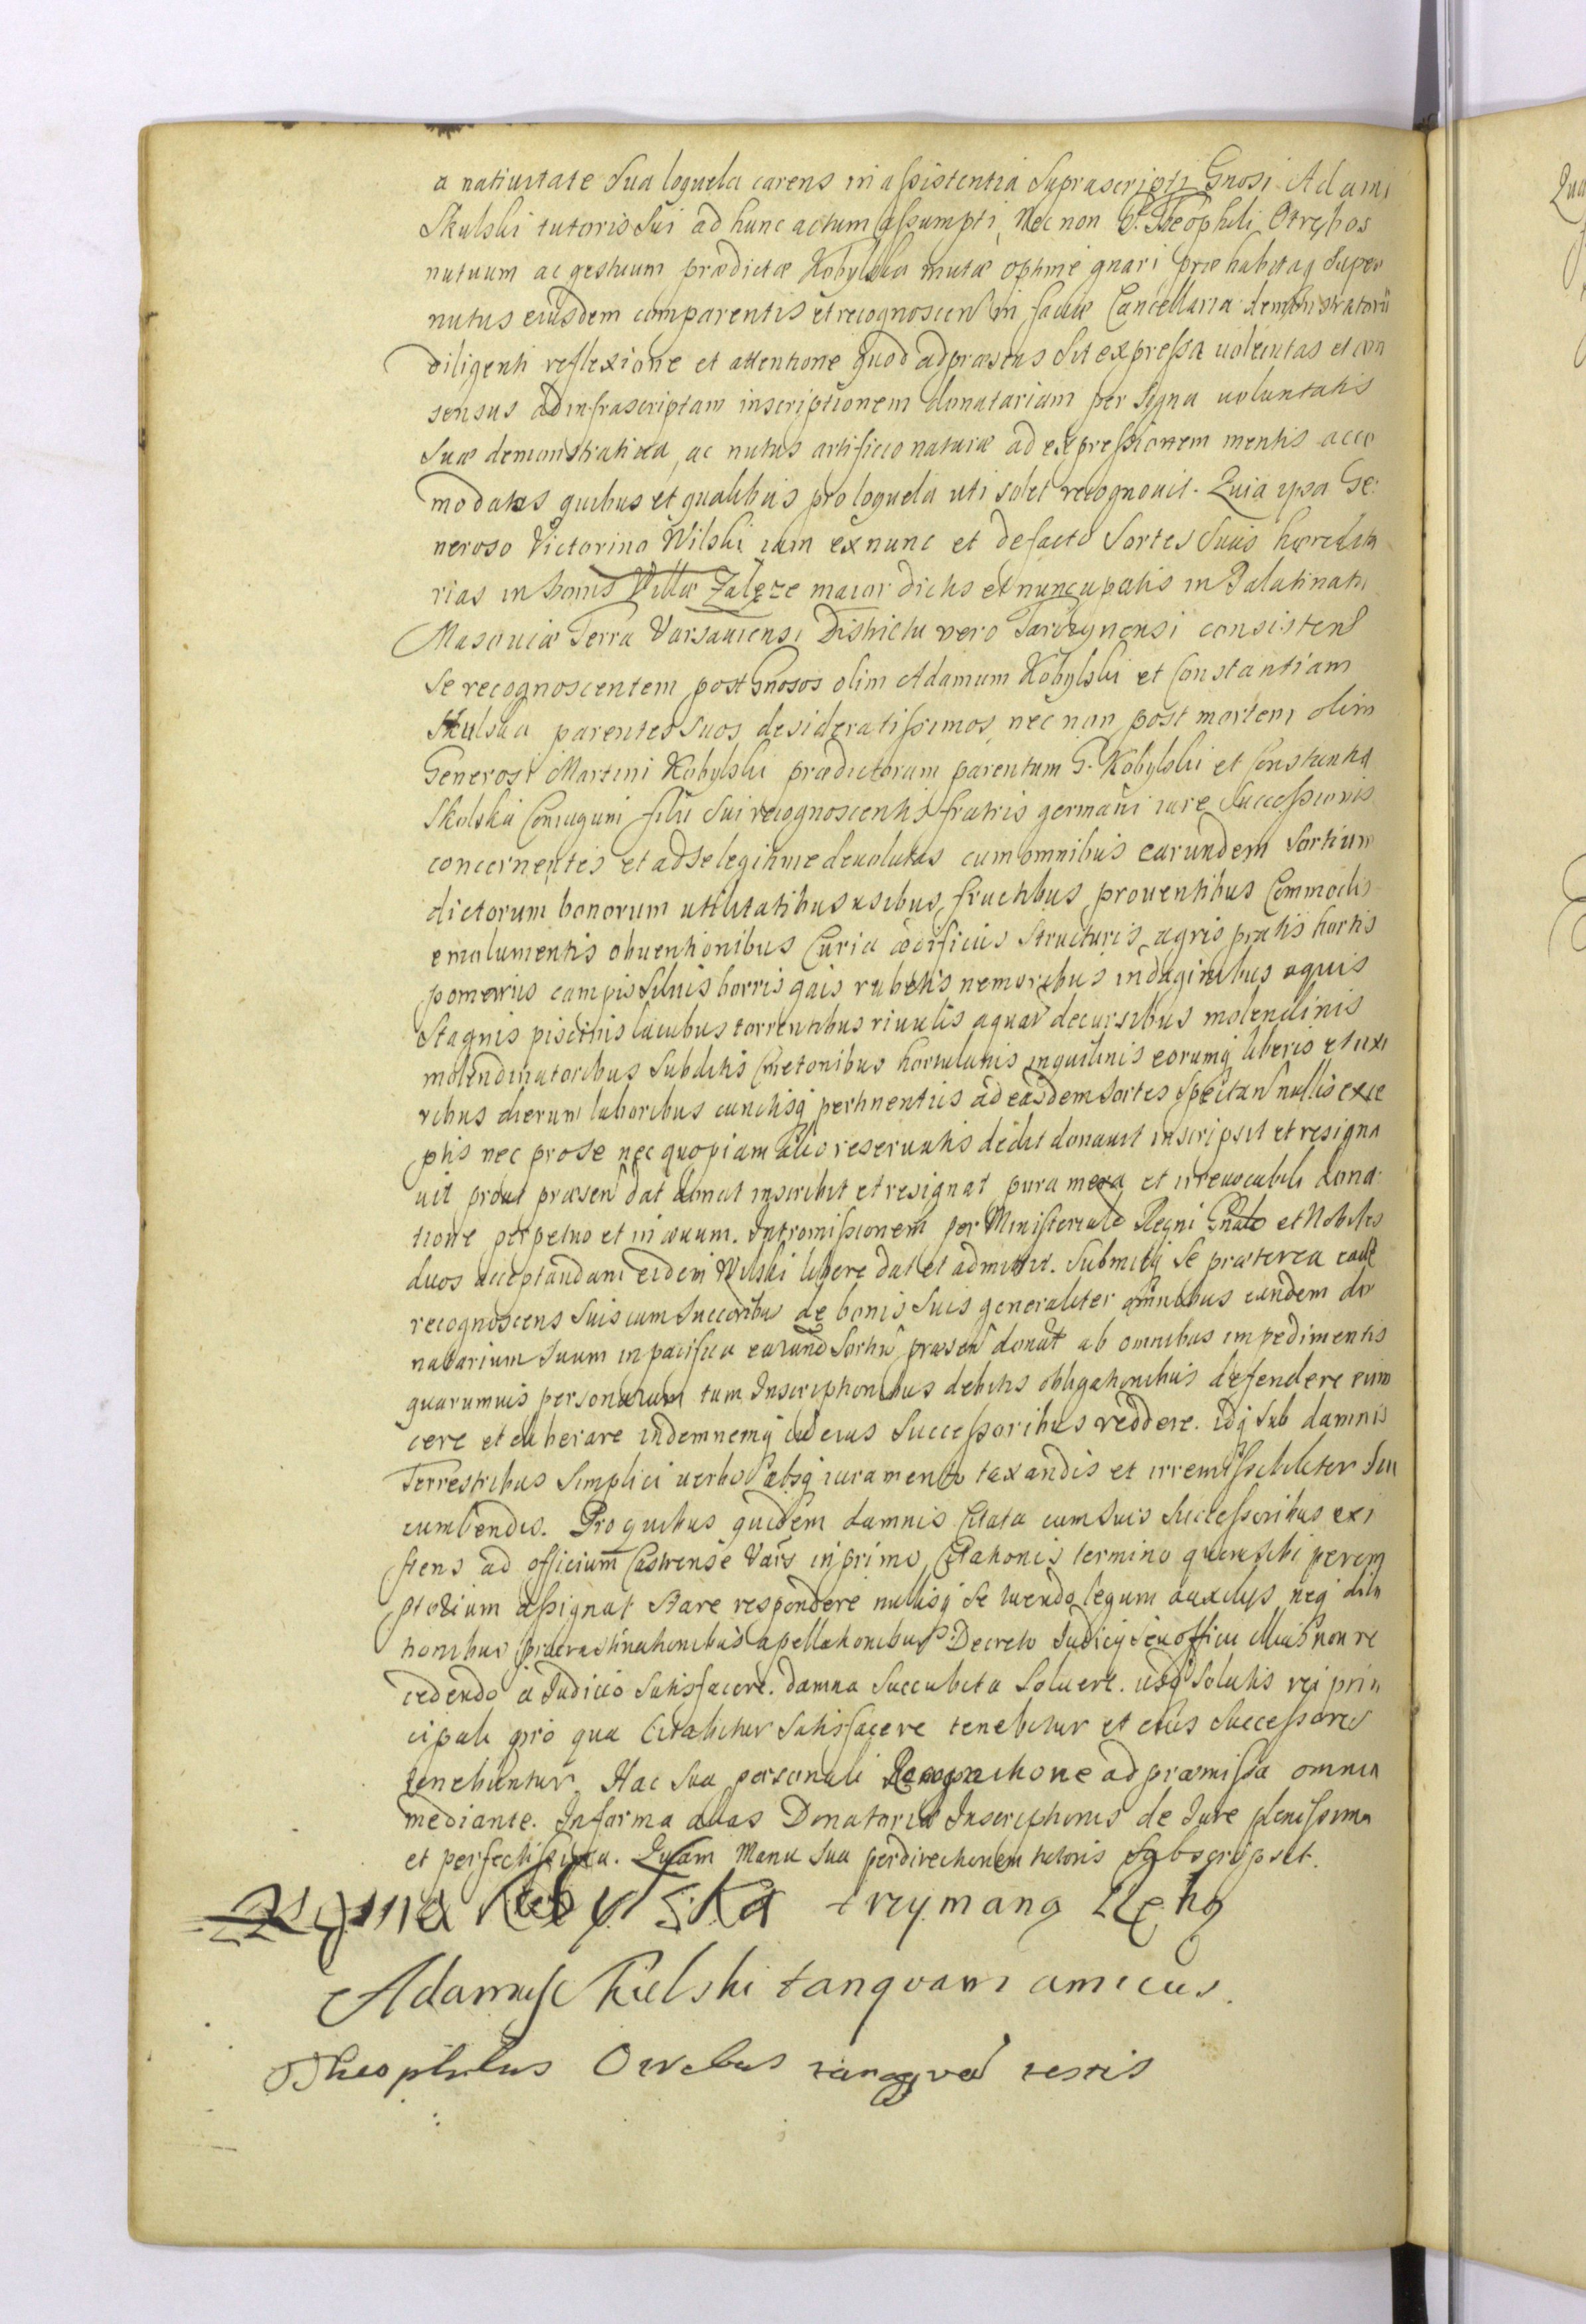 a natiuitate Sua loquela carens in assistentia Suprascripti Gnosi Adami
Skulski tutoris Sui ad hunc actum assumpti, Nec non G. Theophili Otrębos
nutuum ac gestuum prædictæ Kobylska mutæ optime gnari præhabitaq Super
nutus eiusdem comparentis et recognoscen in facie Cancellaria demonstratorii
diligenti reflexione et attentione quod ad præsens Sit expressa uoluntas et con
sensus ad infrascriptam inscriptionem donatariam per Signa uoluntatis
Suæ demonstratiua, ac nutus artificio naturæ ad expressionem mentis acco
modatos quibus et qualibus pro loquela uti solet recognouit. Quia ipsa Ge:
neroso Victorino Wilski iam ex nunc et de facto Sortes Suas hæredita
rias in bonis Villæ Zalęze maior dictis et nuncupatis in Palatinatu
Masouiæ Terra Varsauiensi Districtu vero Tarczynensi consisten
Se recognoscentem post Gnosos olim Adamum Kobylski et Constantiam
Skulska parentes suos desideratissimos, nec non post mortem olim
Generosi Martini Kobylski prædictorum parentum G. Kobylski et Constantia
Skulska Coniugum filii Sui recognoscentis fratris germani iure Successionis
concernentes et ad Se legitime deuolutas cum omnibus earundem Sortium
dictorum bonorum utilitatibus usibus, fructibus, prouentibus Commodis
emolumentis obuentionibus Curia ædificiis Structuris, agris pratis hortis
pomeriis campis Siluis borris gais rubetis nemoribus indaginibus aquis
Stagnis piscinis lacubus torrentibus riuulis aquar decursibus molendinis
molendinatoribus Subditis Cmetonibus hortulanis inquilinis eorumq liberis et uxo
ribus dierum laboribus cunctisq pertinentiis ad easdem Sortes Spectan nullis exce
ptis nec pro Se nec quopiam alio reseruatis dedit donauit inscripsit et resigna
uit prout præsen dat donat inscribit et resignat pura mera et irreuocabili dona
tione perpetuo et in æuum. Intromissionem per Ministeriale Regni Gnale et Nobiles
duos acceptandam eidem Wilski libere dat et admittit. Submittq Se præterea eadē
recognoscens Suis cum Succoribus de bonis Suis generaliter omnibus eundem do
natarium Suum in pacifica earund Sortiu præsen donat ab omnibus impedimentis
quarumuis personarum tum Inscriptionibus debitis obligationibus defendere euin
cere et eliberare indemnemq cui eius Successoribus reddere. idq sub damnis
Terrestribus Simplici uerbo absq iuramento taxandis et irremissibiliter Suc
cumbendis. Pro quibus quidem damnis Citata cum Suis Successoribus exi
stens ad officium Castrense Vars in primo Citationis termino quem sibi perem
ptorium assignat Stare respondere nullisq Se tuendo legum auxiliis neq dila
tionibus procrastinationibus apellationibus Decreto Iudicij Seu officii illius non re
cedendo à Iudicio Satisfacere. damna Succubita Soluere. iisq Solutis rei prin
cipali pro qua Citabitur Satisfacere tenebitur et eius Successores
tenebuntur. Hac Sua personali Recognitione ad præmissa omnia
mediante. In forma alias Donatoriæ Inscriptionis de Iure plenissima
et perfectissima. Quam Manu Sua per directionem tutoris Subscripsit.
Kobylska trzymano Rękę
Adamus Skulski tanquam amicus.
Theophilus Otrebus tanqva testis